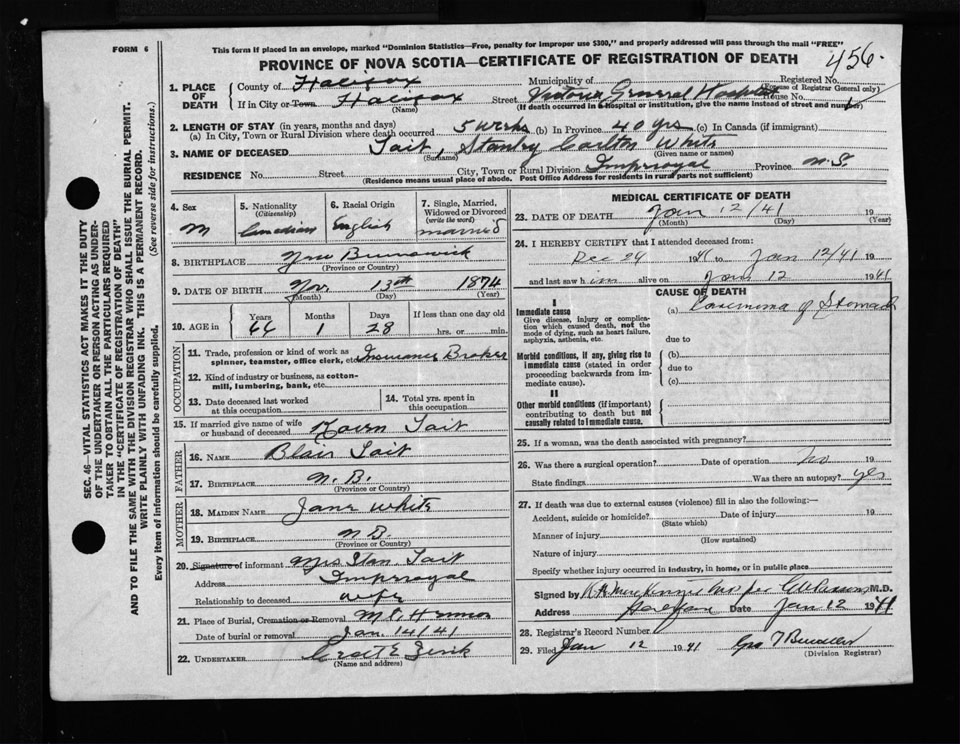 FORM 6
This form if placed in an envelope, marked "Dominion Statistics—Free, penalty for improper use $300," and properly addressed will pass through the mail "FREE"
PROVINCE OF NOVA SCOTIA—CERTIFICATE OF REGISTRATION OF DEATH
456.
SEC. 46—VITAL STATISTICS ACT MAKES IT THE DUTY
OF THE UNDERTAKER OR PERSON ACTING AS UNDER-
TAKER TO OBTAIN ALL THE PARTICULARS REQUIRED
IN THE "CERTIFICATE OF REGISTRATION OF DEATH"
AND TO FILE THE SAME WITH THE DIVISION REGISTRAR WHO SHALL ISSUE THE BURIAL PERMIT.
WRITE PLAINLY WITH UNFADING INK. THIS IS A PERMANENT RECORD.
Every item of Information should be carefully supplied. (See reverse side for instructions.)
1. PLACE OF DEATH County of Halifax Municipality of Registered No.
(For use of Registrar General only)
If in City or Town Halifax Street Victoria General Hospital House No.
(Name) (If death occurred in a hospital or institution, give the name instead of street and number)
2. LENGTH OF STAY (in years, months and days)
(a) In City, Town or Rural Division where death occurred 5 wks (b) In Province 40 yrs (c) In Canada (if immigrant)
3. NAME OF DECEASED Tait, Stanley Carlton White
(Surname) (Given name or names)
RESIDENCE No. Street City, Town or Rural Division Imperoyal Province N.S.
(Residence means usual place of abode. Post Office Address for residents in rural parts not sufficient)
4. Sex 5. Nationality (Citizenship) 6. Racial Origin 7. Single, Married, Widowed or Divorced (write the word)
M Canadian English married
8. BIRTHPLACE New Brunswick
(Province or Country)
9. DATE OF BIRTH Nov. 13th 1874
(Month) (Day) (Year)
10. AGE in Years Months Days If less than one day old
66 1 28 hrs. or min.
OCCUPATION
11. Trade, profession or kind of work as spinner, teamster, office clerk, etc. Insurance Broker
12. Kind of industry or business, as cotton-mill, lumbering, bank, etc.
13. Date deceased last worked at this occupation
14. Total yrs. spent in this occupation
15. If married give name of wife or husband of deceased Tait
FATHER
16. NAME Blair Tait
17. BIRTHPLACE N.B.
(Province or Country)
MOTHER
18. MAIDEN NAME Jane White
19. BIRTHPLACE N.B.
(Province or Country)
20. Signature of informant Mrs Stan. Tait
Address Imperoyal
Relationship to deceased wife
21. Place of Burial, Cremation or Removal Mt. Hermon
Date of burial or removal Jan. 14/41
22. UNDERTAKER
(Name and address)
MEDICAL CERTIFICATE OF DEATH
23. DATE OF DEATH Jan 12/41 19
(Month) (Day) (Year)
24. I HEREBY CERTIFY that I attended deceased from:
Dec 24 1941 to Jan 12/41 19
and last saw h im alive on Jan 12 1941
CAUSE OF DEATH
I
Immediate cause (a) Carcinoma of Stomach
Give disease, injury or complication which caused death, not the mode of dying, such as heart failure, asphyxia, asthenia, etc.
due to
Morbid conditions, if any, giving rise to immediate cause (stated in order proceeding backwards from immediate cause).
(b)
due to
(c)
II
Other morbid conditions (if important) contributing to death but not causally related to immediate cause.
25. If a woman, was the death associated with pregnancy?
26. Was there a surgical operation? Date of operation no 19
State findings Was there an autopsy? yes
27. If death was due to external causes (violence) fill in also the following:—
Accident, suicide or homicide? Date of injury 19
(State which)
Manner of injury
(How sustained)
Nature of injury
Specify whether injury occurred in industry, in home, or in public place
Signed by M.D.
Address Halifax Date Jan 12 1941
28. Registrar's Record Number
29. Filed Jan 12 1941 Geo T
(Division Registrar)